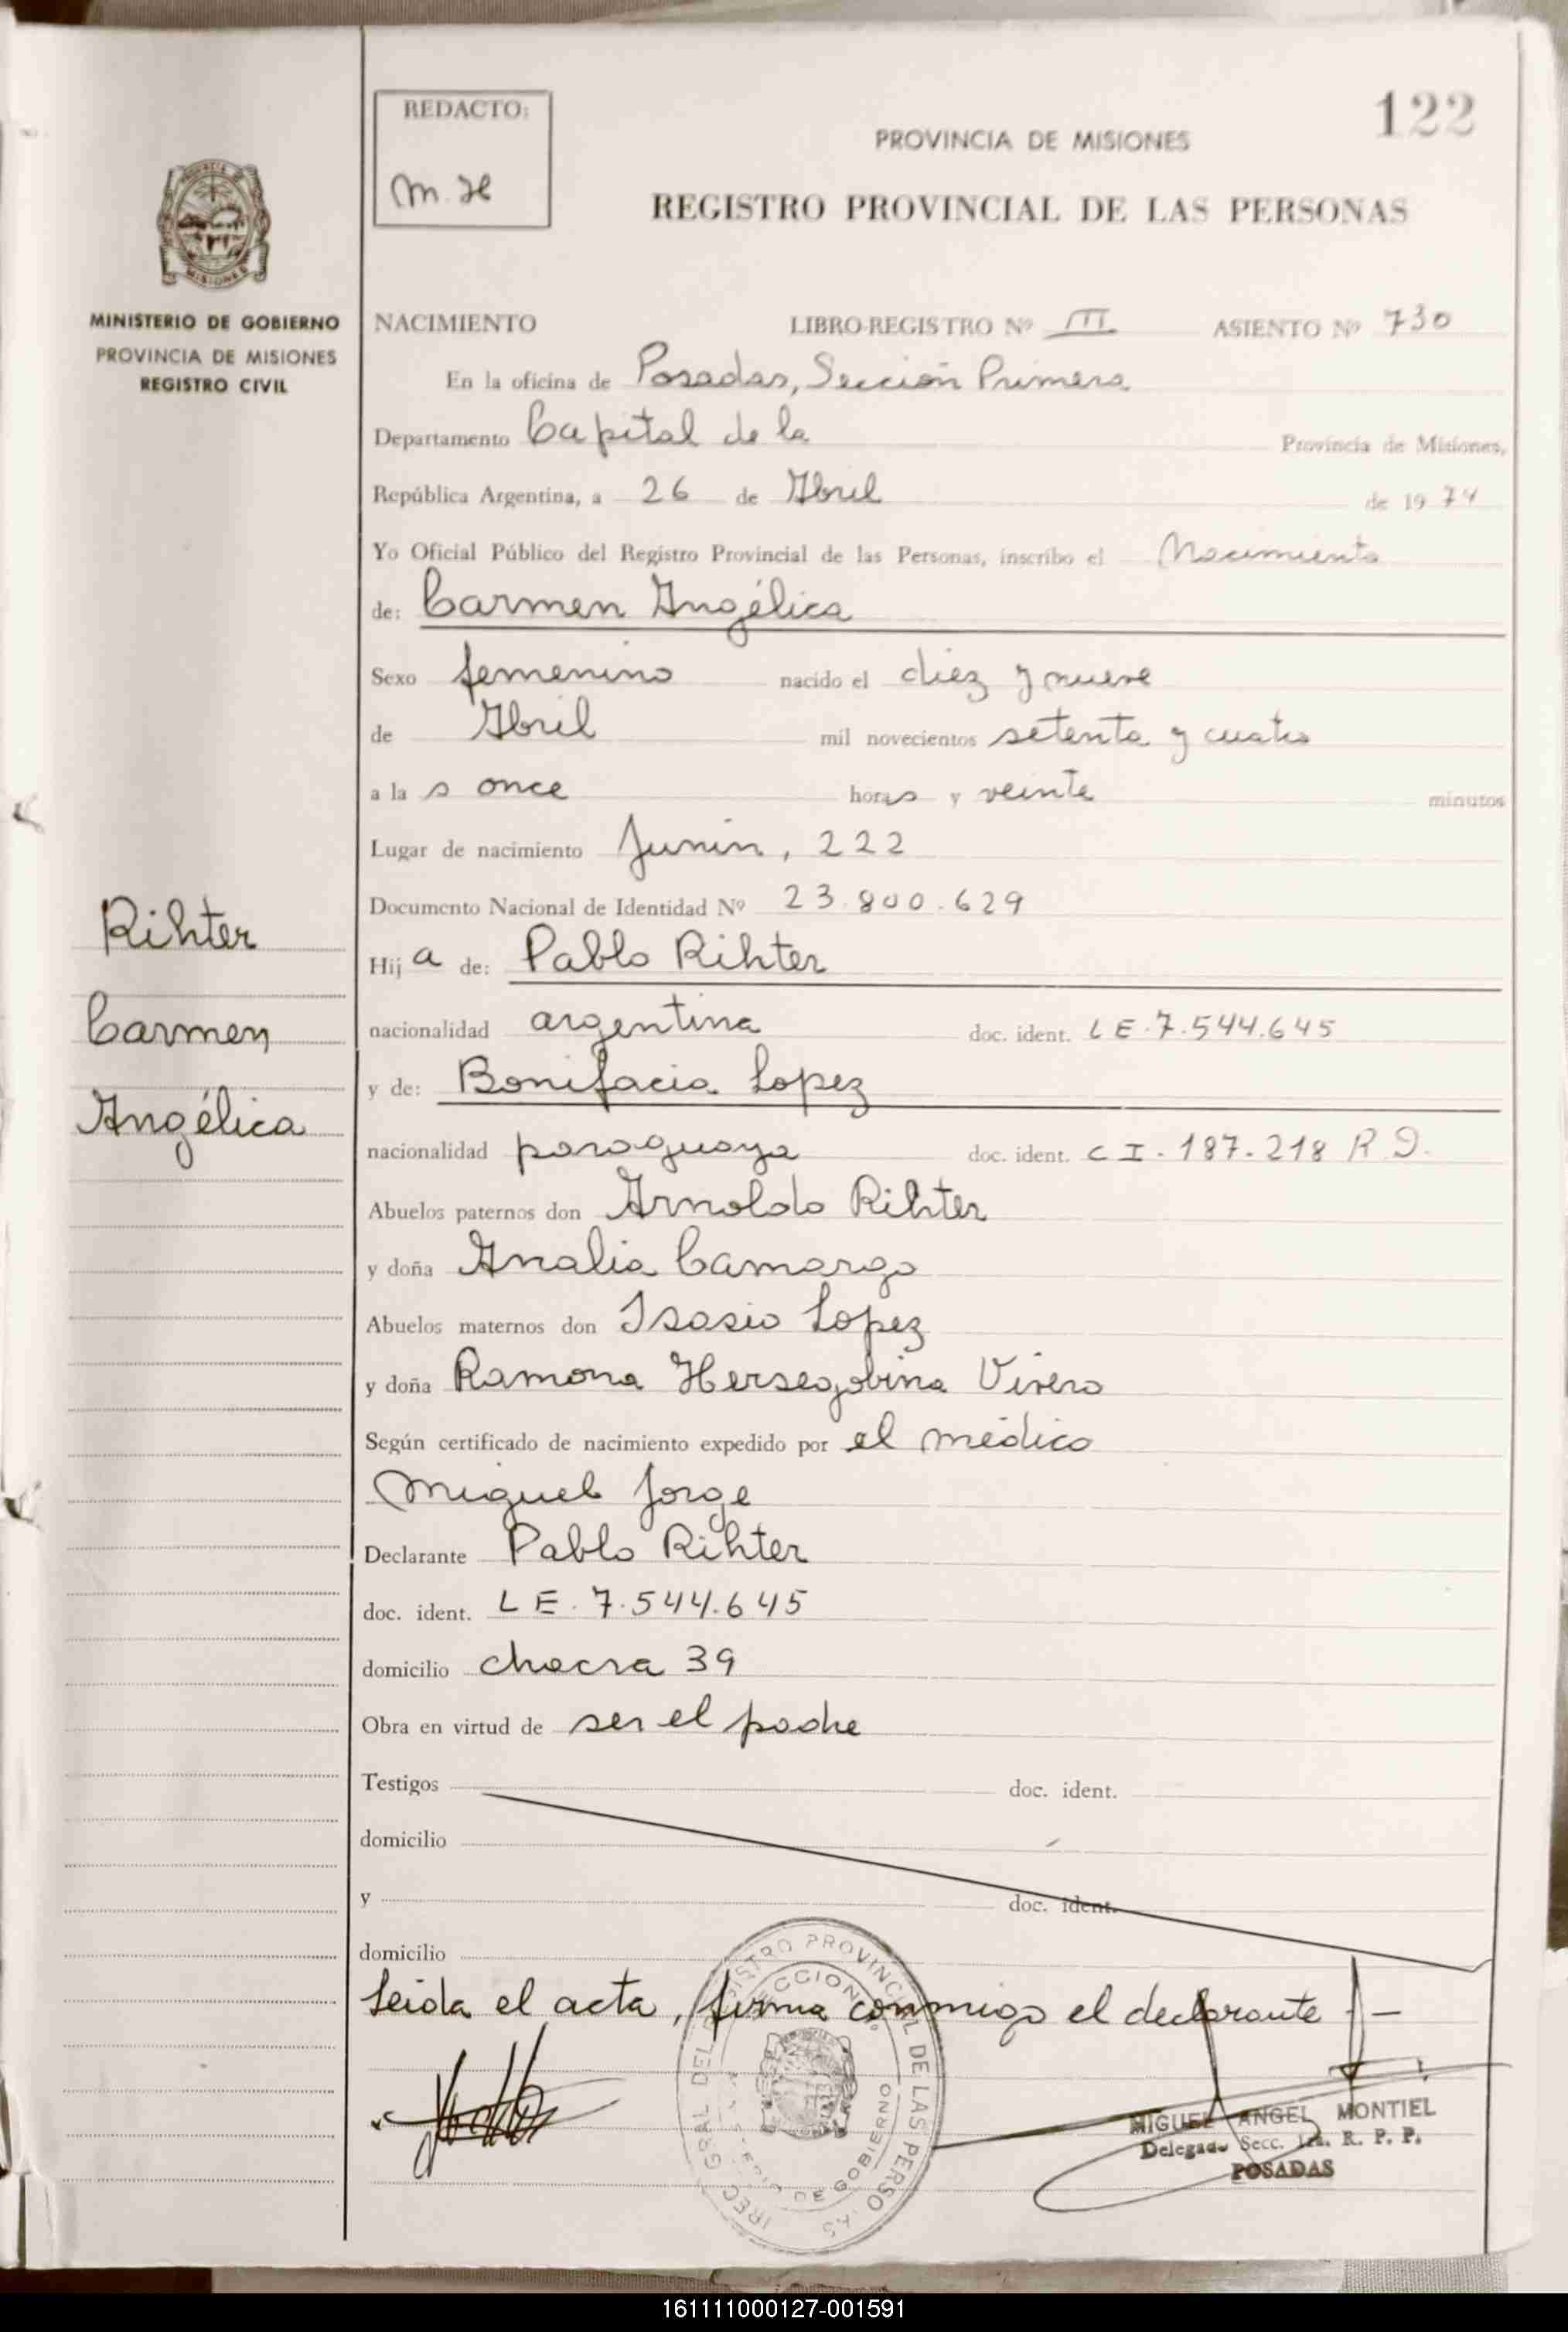 122
REDACTO:
M. H
PROVINCIA DE MISIONES
REGISTRO PROVINCIAL DE LAS PERSONAS
MISIONES
MINISTERIO DE GOBIERNO
PROVINCIA DE MISIONES
REGISTRO CIVIL
NACIMIENTO LIBRO-REGISTRO Nº III ASIENTO Nº 730
En la oficina de Posadas, Sección Primera
Departamento Capital de la Provincia de Misiones,
República Argentina, a 26 de Abril de 1974
Yo Oficial Público del Registro Provincial de las Personas, inscribo el Nacimiento
de: Carmen Angélica
Sexo femenino nacido el diez y nueve
de Abril mil novecientos setenta y cuatro
a la s once horas y veinte minutos
Lugar de nacimiento Junin, 222
Documento Nacional de Identidad Nº 23.800.629
Rihter
Carmen
Angélica
Hij a de: Pablo Rihter
nacionalidad argentina doc. ident. LE.7.544.645
y de: Bonifacia Lopez
nacionalidad paraguaya doc. ident. C I. 187.218 R.D.
Abuelos paternos don Arnoldo Rihter
y doña Analia Camargo
Abuelos maternos don Isasio Lopez
y doña Ramona Hersegobina Vivero
Según certificado de nacimiento expedido por el médico
Miguel Jorge
Declarante Pablo Rihter
doc. ident. LE. 7.544.645
domicilio chacra 39
Obra en virtud de ser el padre
Testigos doc. ident.
domicilio
y doc. ident.
domicilio
Leida el acta, firma conmigo el declarante
MIGUEL ANGEL MONTIEL
Delegado Secc. 1ra. R. P. P.
POSADAS
161111000127-001591